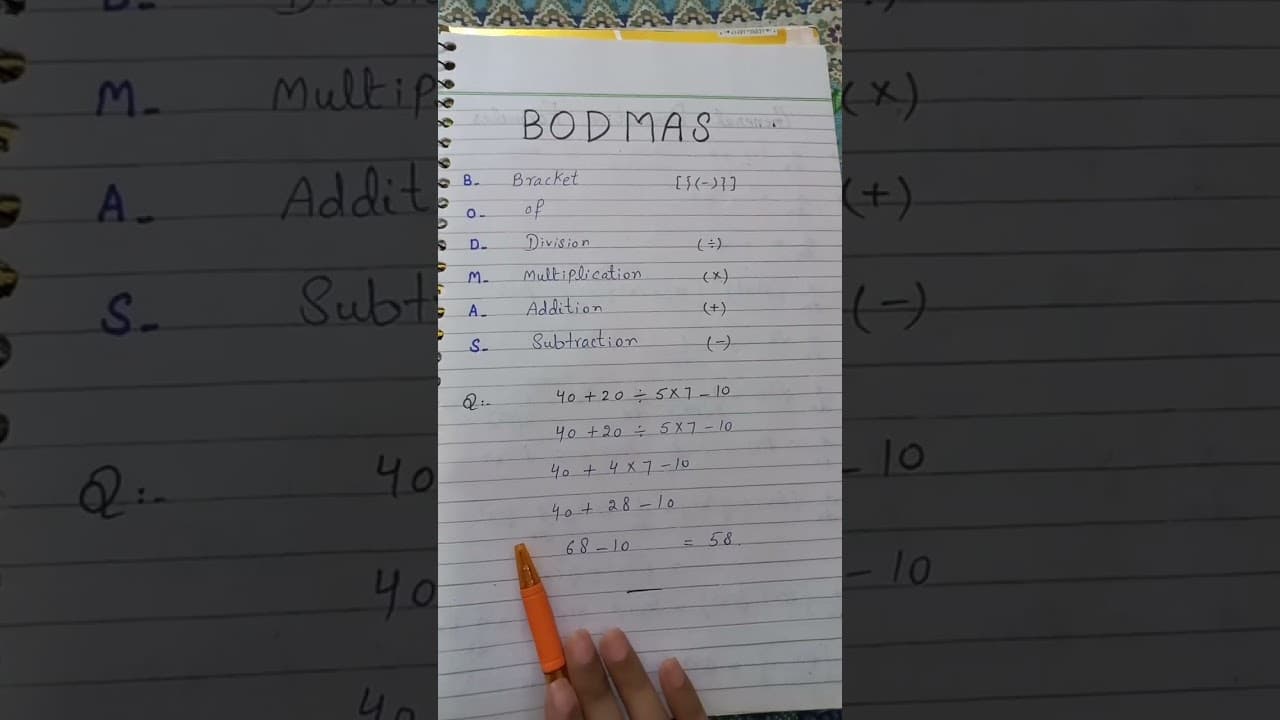 BODMAS
B- Bracket [{(-)}]
O- of
D- Division (÷)
M- Multiplication (×)
A- Addition (+)
S- Subtraction (-)
Q:- 40 + 20 ÷ 5 × 7 - 10
40 + 20 ÷ 5 × 7 - 10
40 + 4 × 7 - 10
40 + 28 - 10
68 - 10 = 58